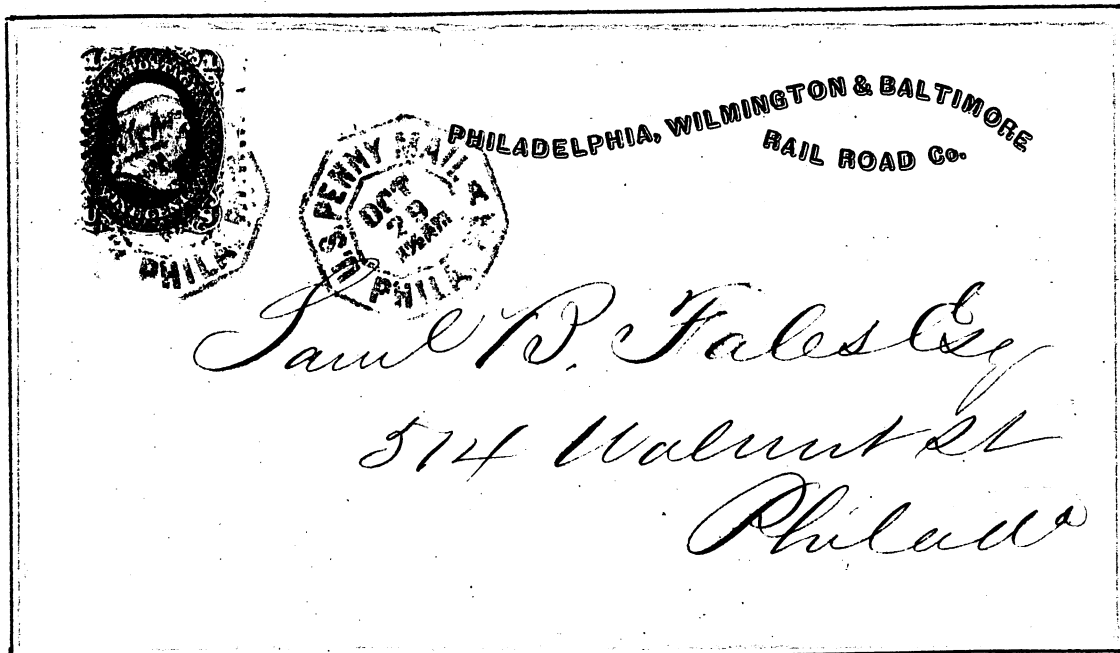 PHILADELPHIA, WILMINGTON & BALTIMORE
RAIL ROAD Co.
U.S. PENNY MAIL
OCT
29
PHILA
PHILA
Saml B. Fales Esq
514 Walnut St
Philada